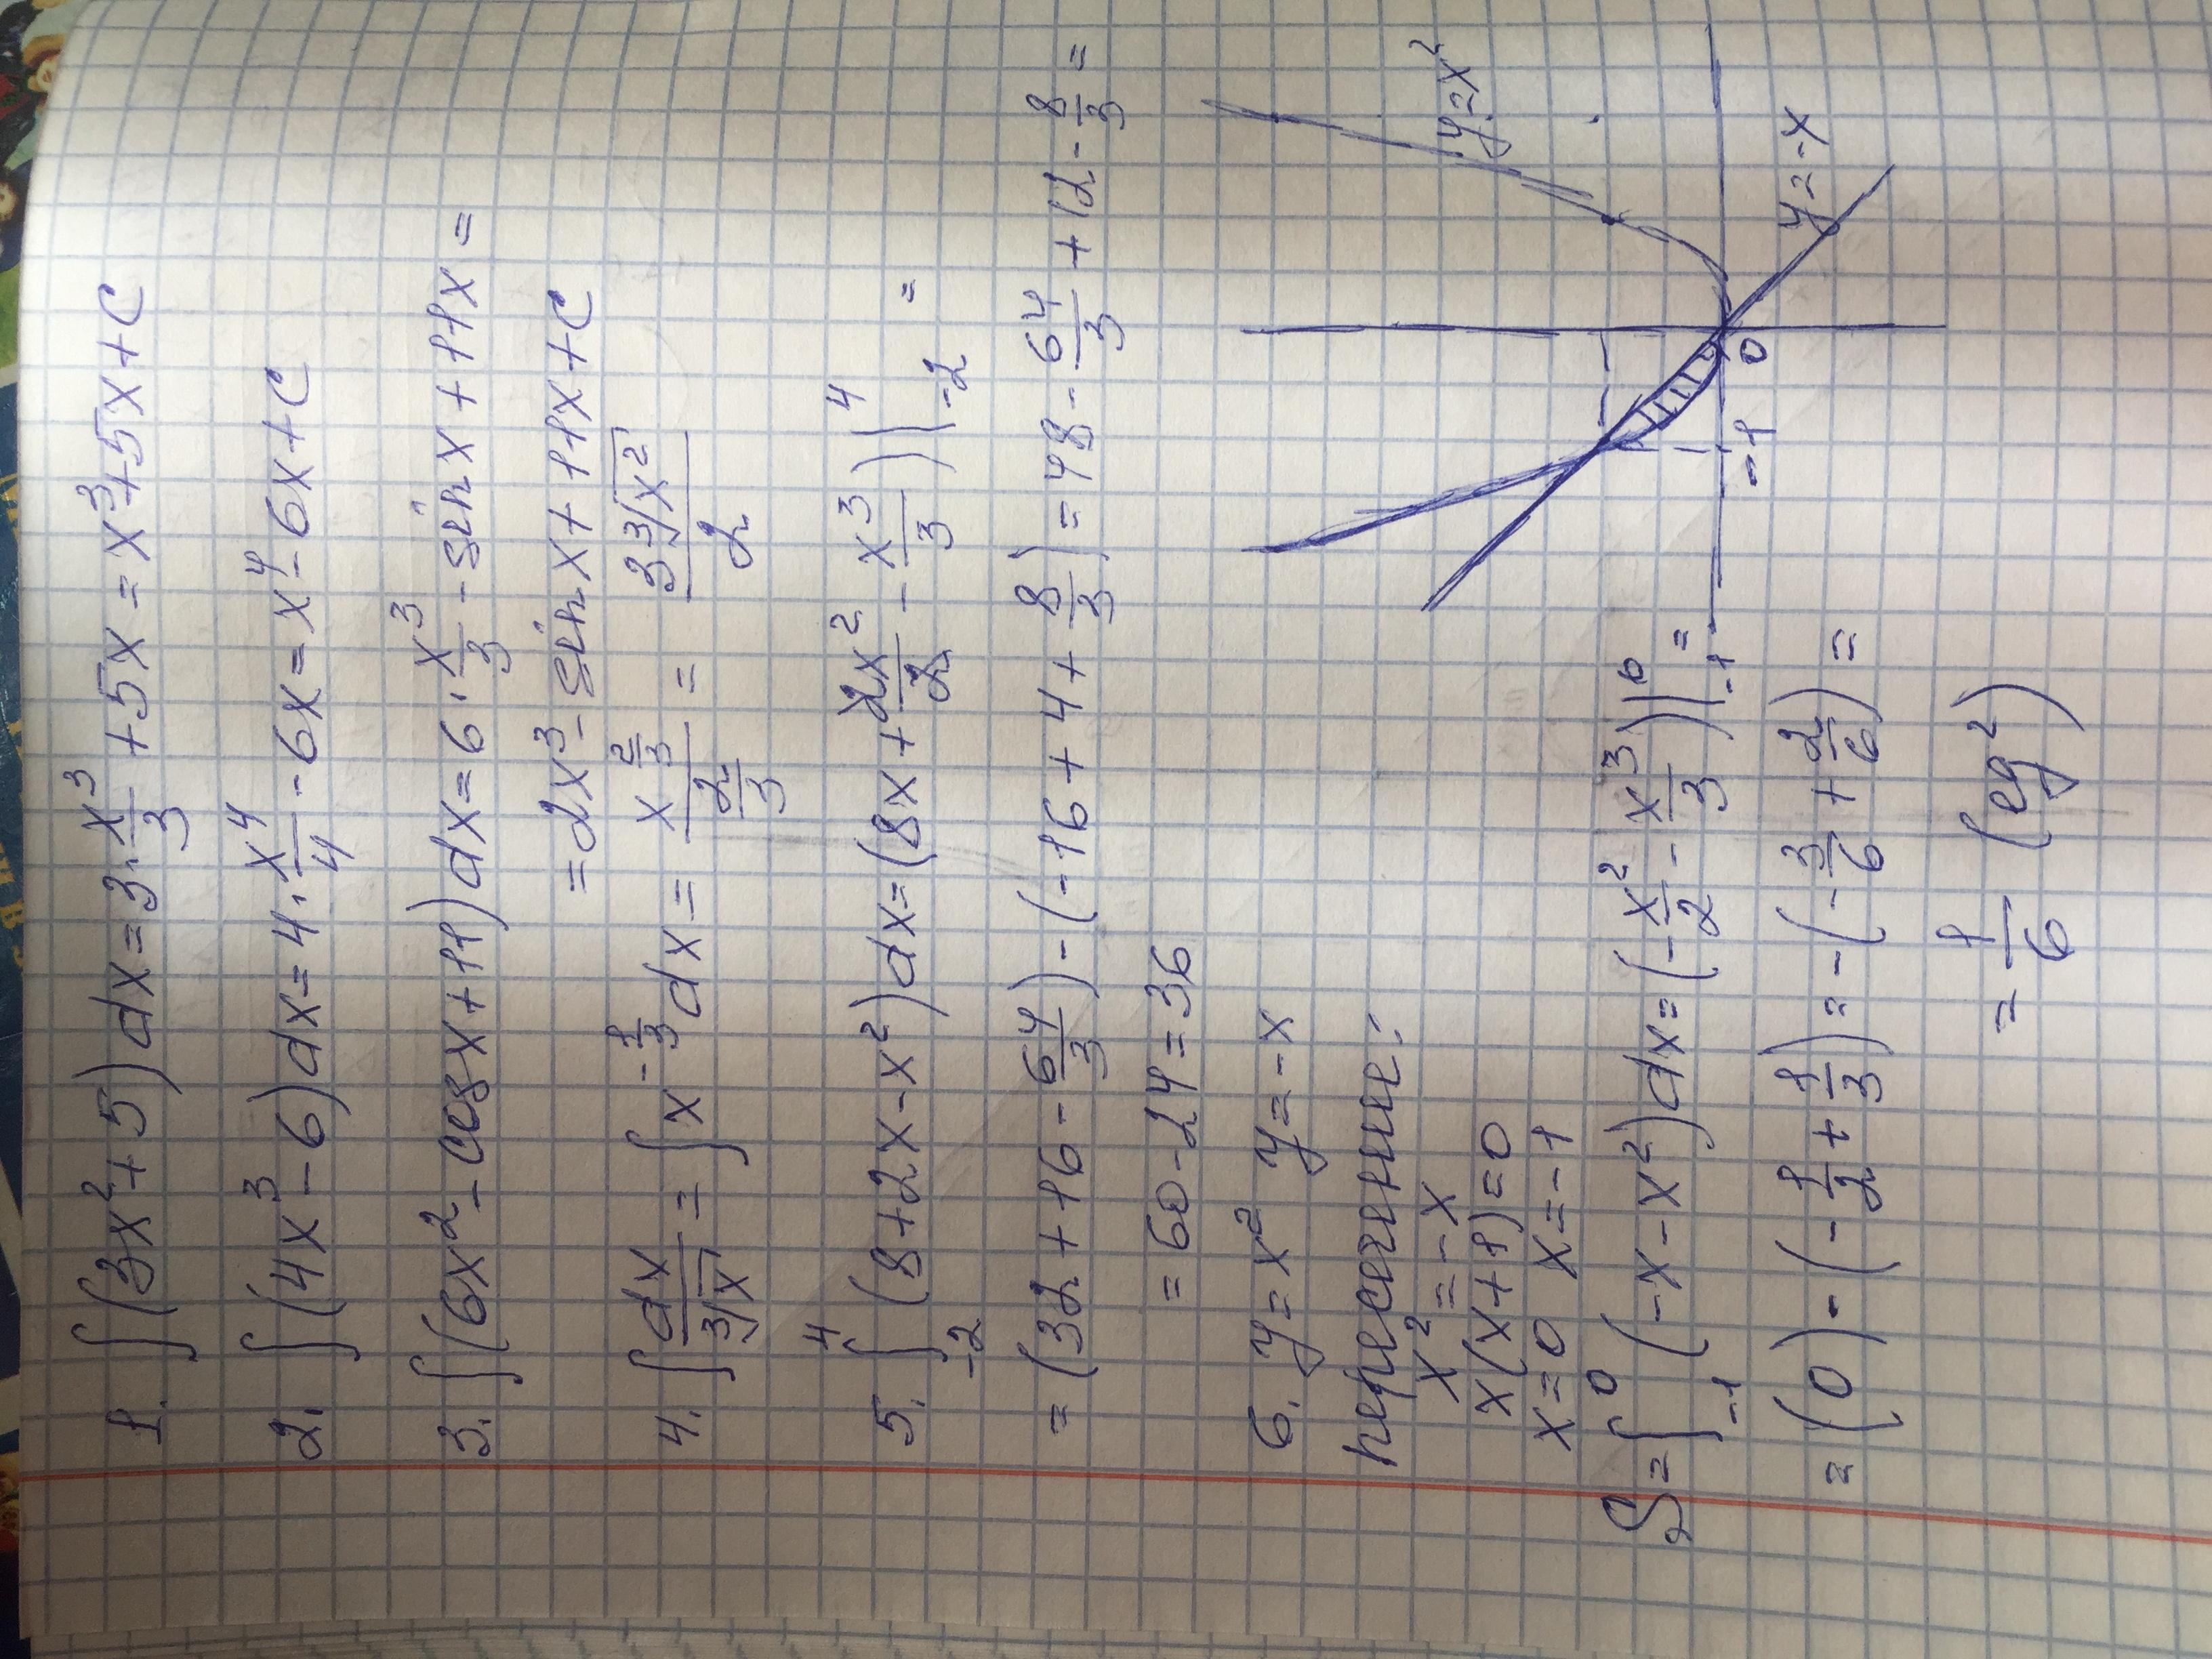 1. ∫(3x²+5)dx = 3·x³/3 + 5x = x³+5x+C
2. ∫(4x³-6)dx = 4·x⁴/4 - 6x = x⁴-6x+C
3. ∫(6x²-cosx+11)dx = 6·x³/3 - sinx+11x =
= 2x³-sinx+11x+C
4. ∫dx/³√x = ∫x^(-1/3)dx = x^(2/3)/(2/3) = 3³√x²/2
5. ∫₋₂⁴(8+2x-x²)dx = (8x+2x²/2 - x³/3)|₋₂⁴ =
= (32+16-64/3)-(-16+4+8/3) = 48-64/3+12-8/3 =
= 60-24=36
6. y=x² y=-x
пересечение:
x²=-x
x(x+1)=0
x=0 x=-1
S=∫₋₁⁰(-x-x²)dx=(-x²/2 - x³/3)|₋₁⁰ =
=(0)-(-1/2+1/3)=-(-3/6+2/6)=
=1/6 (ед²)
y=x²
y=-x
0
-1